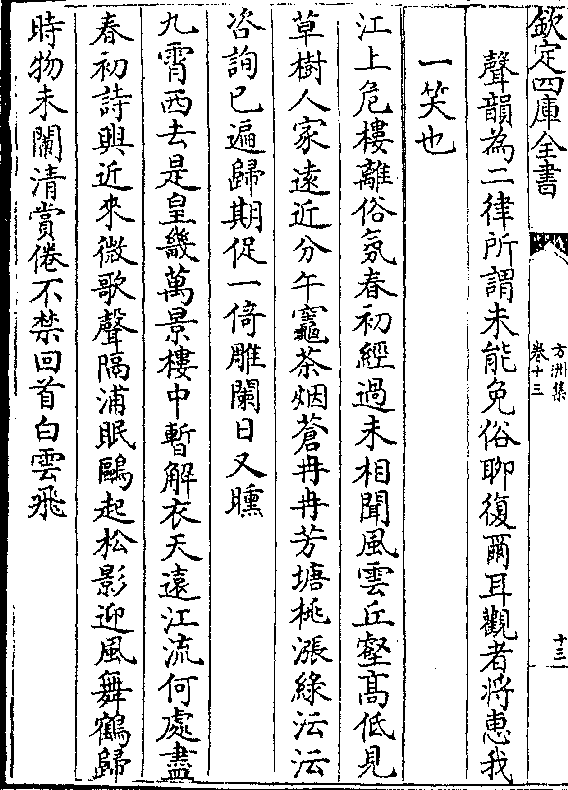 欽定四庫全書
方洲集
卷十三
十三
聲韻為二律所謂未能免俗聊復爾耳觀者將惠我
一笑也
江上危樓離俗氛春初經過未相聞風雲丘壑髙低見
草樹人家逺近分午竈茶烟蒼冉冉芳塘桃漲緑沄沄
咨詢已遍歸期促一倚雕闌日又曛
九霄西去是皇畿萬景樓中暫解衣天逺江流何處盡
春初詩興近來微歌聲隔浦眠鷗起松影迎風舞鶴歸
時物未闌清賞倦不禁回首白雲飛